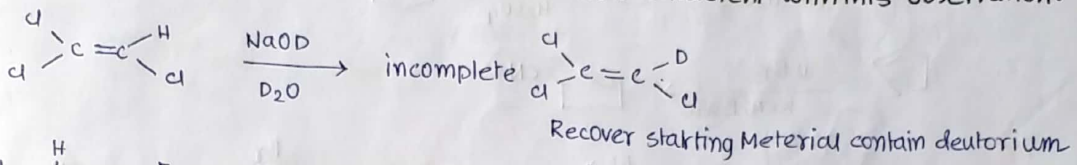 Cl Cl C=C H Cl NaOD D2O incomplete Cl Cl C=C D Cl
Recover starting Meterial contain deutorium
H